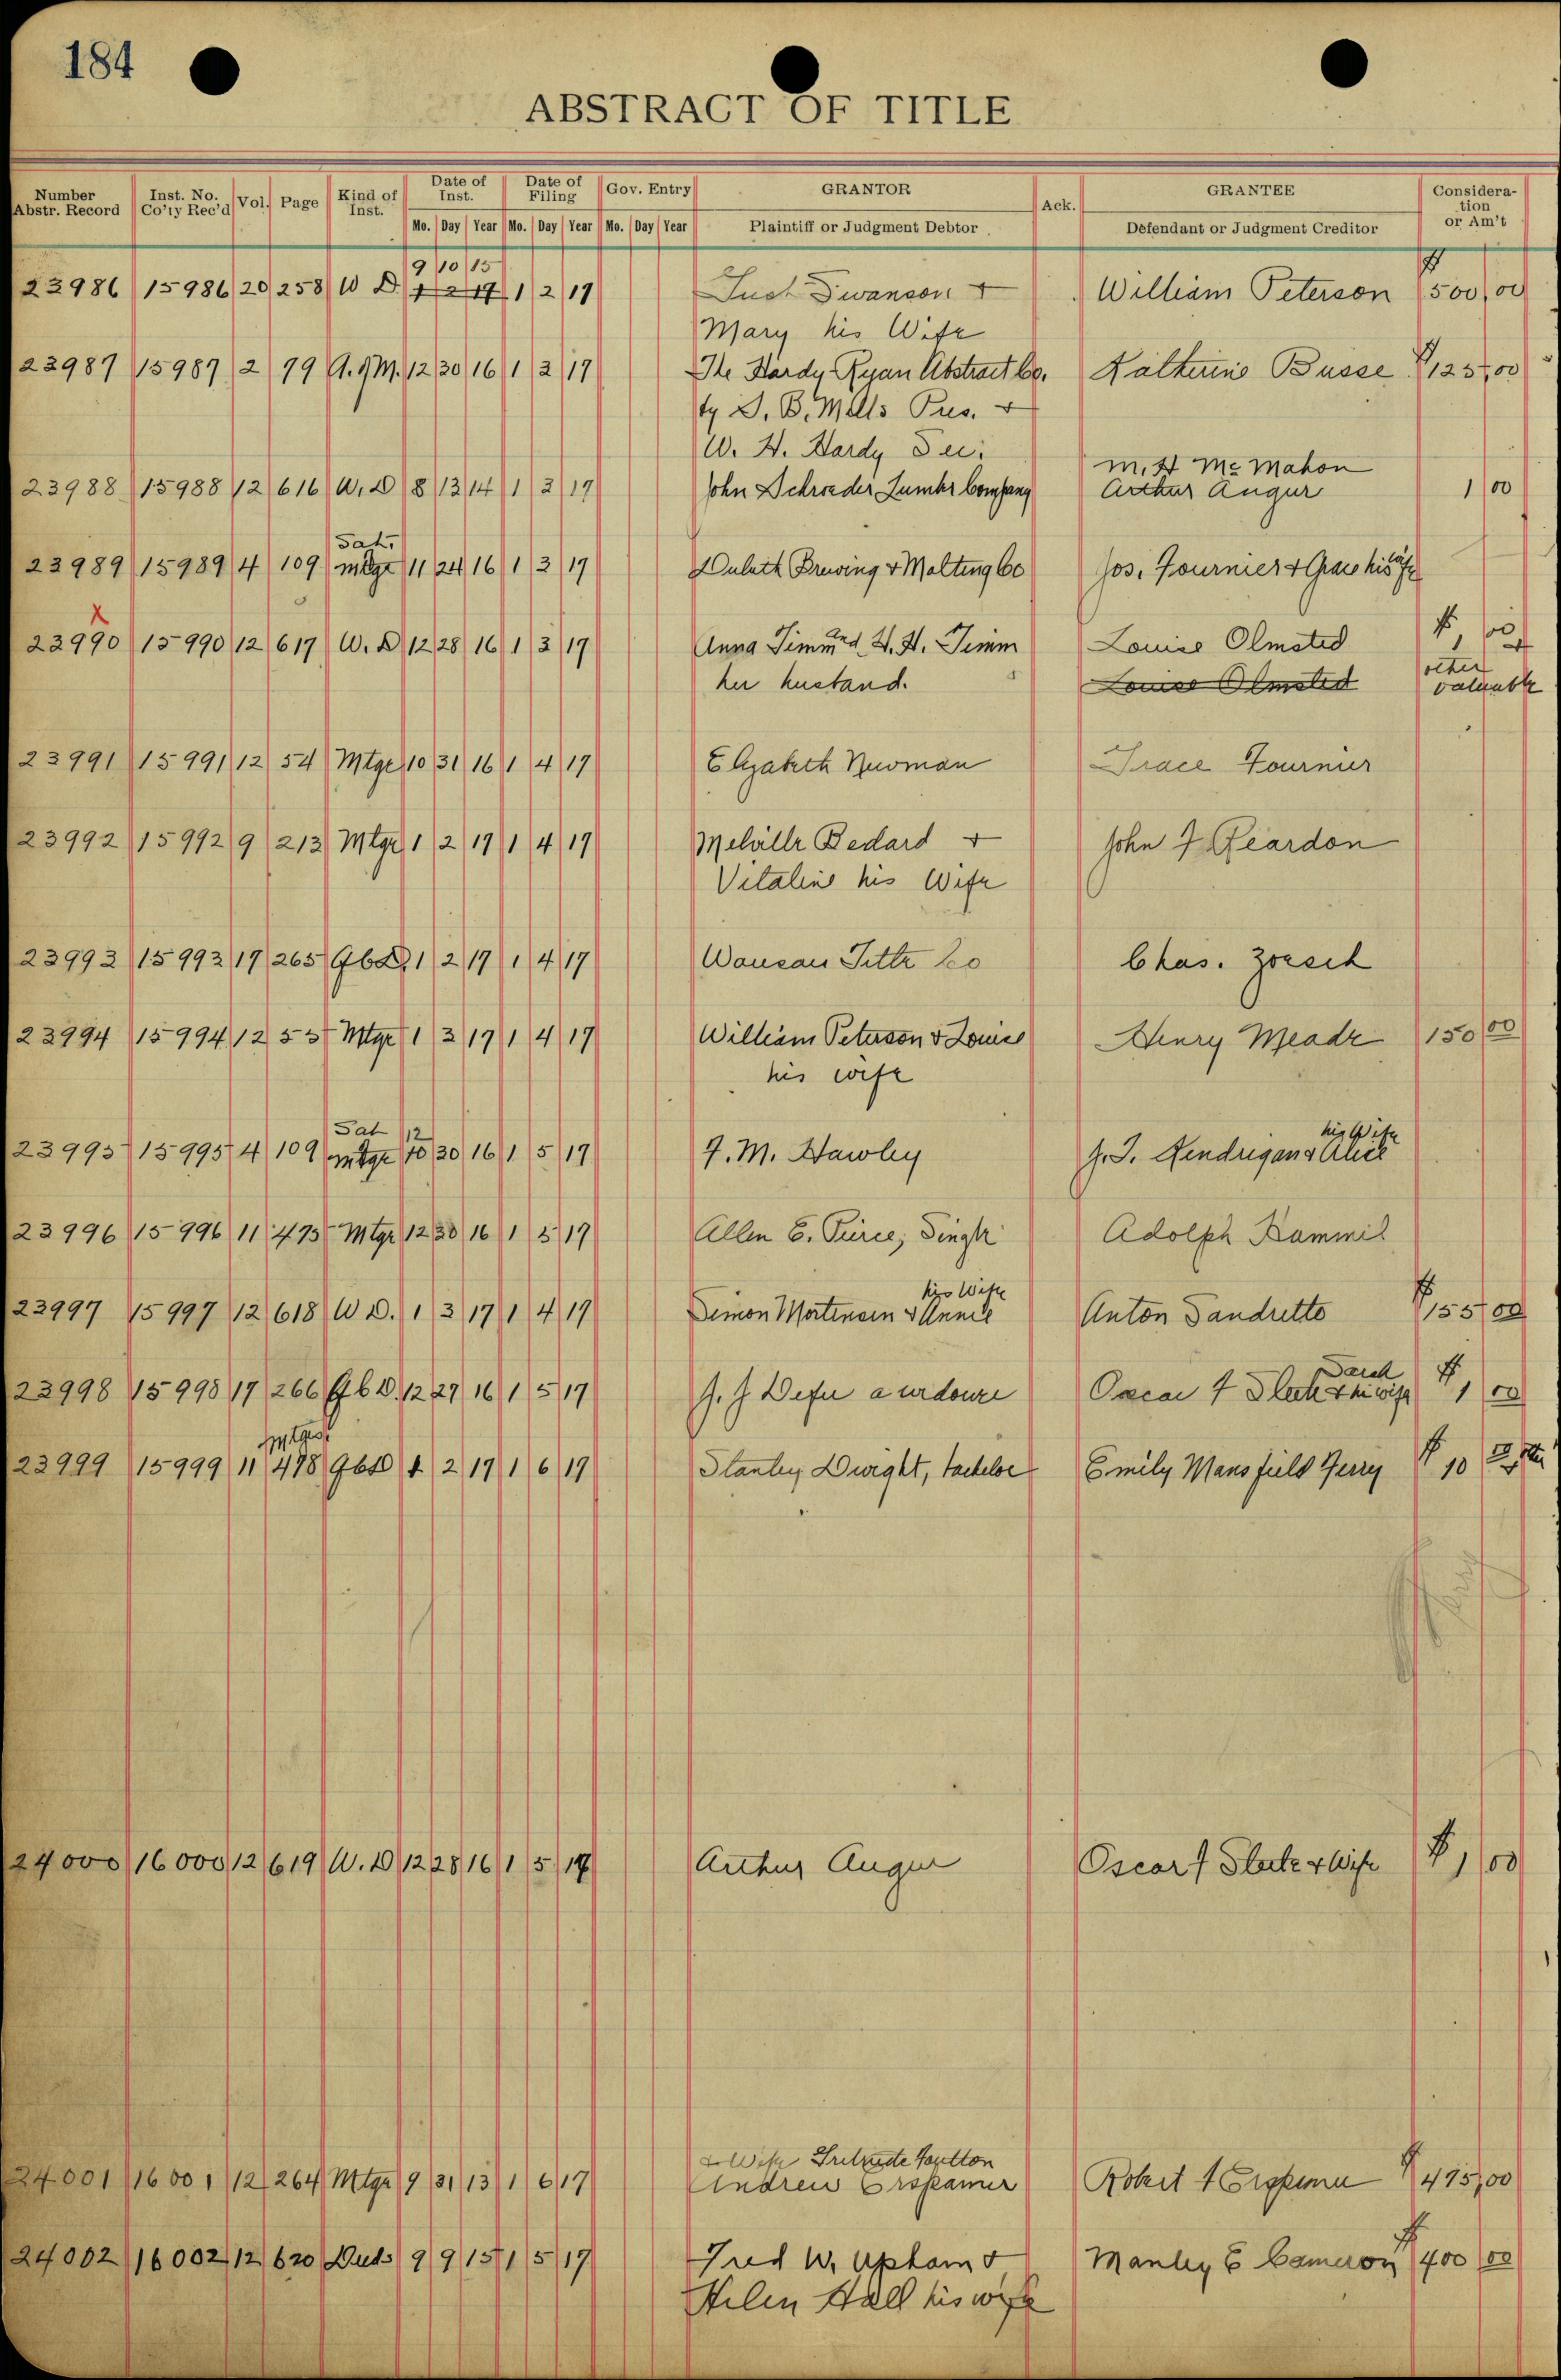 184
ABSTRACT OF TITLE
Number Abstr. Record Inst. No. Co'ty Rec'd Vol. Page Kind of Inst. Date of Inst. Date of Filing Gov. Entry GRANTOR Ack. GRANTEE Consideration or Am't
Mo. Day Year Mo. Day Year Mo. Day Year Plaintiff or Judgment Debtor Defendant or Judgment Creditor
9 10 15
23986 15986 20 258 W D 1 2 17 1 2 17 Swanson + William Peterson $500 00
Mary his Wife
23987 15987 2 79 A. of M. 12 30 16 1 2 17 The Hardy Ryan Abstract Co. Katherine Busse $125 00
by S. B. Mills Pres. +
W. H. Hardy Sec.
M. H Mc Mahon
23988 15988 12 616 W. D 8 13 14 1 3 17 John Schroeder Lumber Company Arthur Augur 1 00
Sat.
23989 15989 4 109 mtge 11 24 16 1 3 17 Duluth Brewing + Malting Co Jos. Fournier + Grace his wife
X
23990 15990 12 617 W. D 12 28 16 1 3 17 Anna Timm and H. H. Timm Louise Olmsted $1 00 +
her husband. Louise Olmsted other valuable
23991 15991 12 54 Mtge 10 31 16 1 4 17 Elizabeth Newman Grace Fournier
23992 15992 9 213 Mtge 1 2 17 1 4 17 Melville Bedard + John F Reardon
Vitaline his Wife
23993 15993 17 265 Q C D. 1 2 17 1 4 17 Wausau Title Co Chas. Zoesch
23994 15994 12 55 Mtge 1 3 17 1 4 17 William Peterson + Louise Henry Meade 150 00
his wife
Sat 12 his Wife
23995 15995 4 109 mtge 10 30 16 1 5 17 F. M. Hawley J. J. Kendrigan + Alice
23996 15996 11 475 Mtge 12 30 16 1 5 17 Allen E. Pierce, Single Adolph Hammil
his Wife
23997 15997 12 618 W D. 1 3 17 1 4 17 Simon Mortensen + Annie Anton Sandretto $155 00
23998 15998 17 266 Q C D. 12 27 16 1 5 17 Oscar F + his wife $1 00
Mtges
23999 15999 11 478 Q C D 1 2 17 1 6 17 Stanley Dwight, bachelor Emily Mansfield Ferry $10
24000 16000 12 619 W. D 12 28 16 1 5 17 Arthur Augur Oscar F + Wife $1 00
+ Wife
24001 16001 12 264 Mtge 9 31 13 1 6 17 Andrew Erspamer Robert $475 00
24002 16002 12 620 Deed 9 9 15 1 5 17 Fred W. Upham + Manley E Cameron $400 00
Helen Hall his wife